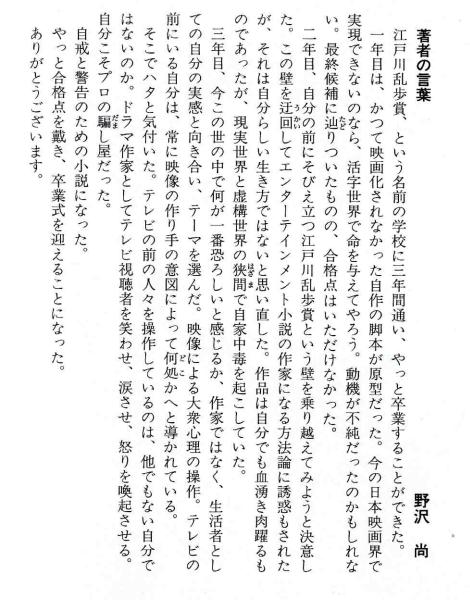 著者の言葉
野沢 尚
江戸川乱歩賞、という名前の学校に三年間通い、やっと卒業することができた。
一年目は、かつて映画化されなかった自作の脚本が原型だった。今の日本映画界で
実現できないのなら、活字世界で命を与えてやろう。動機が不純だったのかもしれな
い。最終候補に辿りついたものの、合格点はいただけなかった。
二年目、自分の前にそびえ立つ江戸川乱歩賞という壁を乗り越えてみようと決意し
た。この壁を迂回してエンターテインメント小説の作家になる方法論に誘惑もされた
が、それは自分らしい生き方ではないと思い直した。作品は自分でも血湧き肉躍るも
のであったが、現実世界と虚構世界の狭間で自家中毒を起こしていた。
三年目、今この世の中で何が一番恐ろしいと感じるか、作家ではなく、生活者とし
ての自分の実感と向き合い、テーマを選んだ。映像による大衆心理の操作。テレビの
前にいる自分は、常に映像の作り手の意図によって何処かへと導かれている。
そこでハタと気付いた。テレビの前の人々を操作しているのは、他でもない自分で
はないのか。ドラマ作家としてテレビ視聴者を笑わせ、涙させ、怒りを喚起させる。
自分こそプロの騙し屋だった。
自戒と警告のための小説になった。
やっと合格点を戴き、卒業式を迎えることになった。
ありがとうございます。